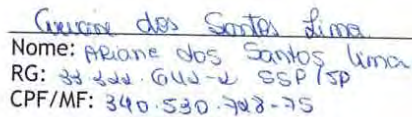 Ariane dos Santos Lima
Nome: ARiane dos Santos Lima
RG: SSP/SP
CPF/MF: 340.530.728-75